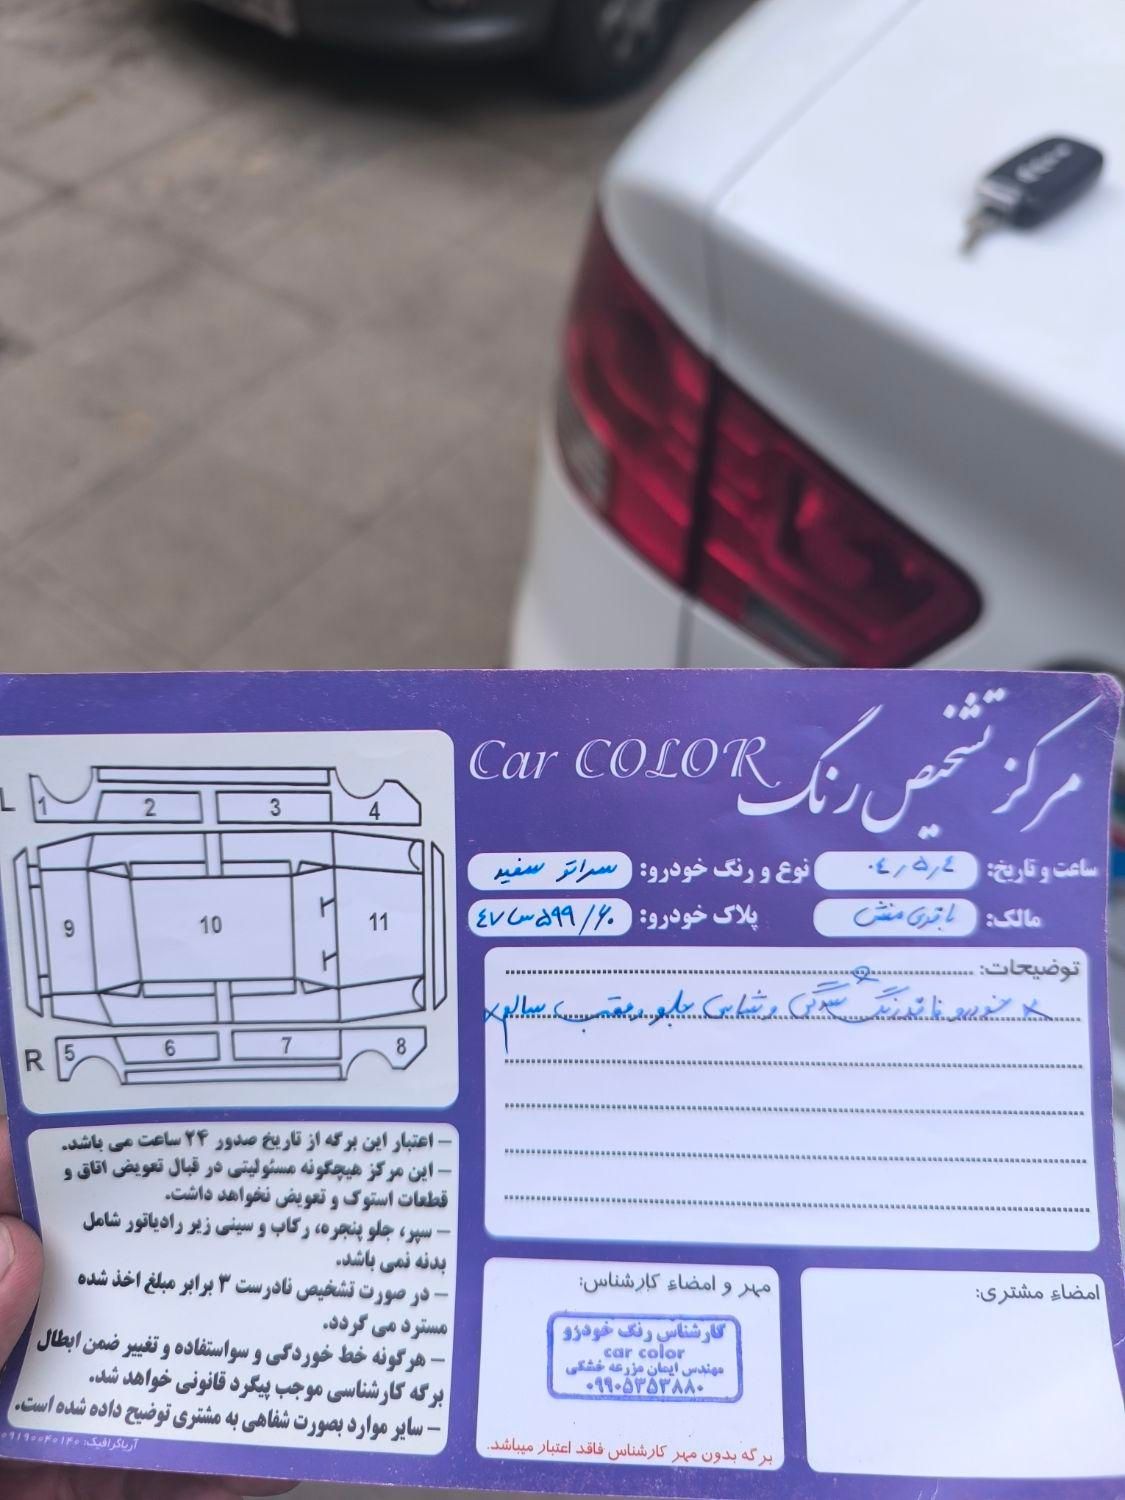 مرکز تشخیص رنگ
Car COLOR
ساعت و تاریخ: ۰۴٫۵٫۴
نوع و رنگ خودرو: سراتو سفید
مالک:
پلاک خودرو: ۶۰/ ۵۹۹س۴۷
توضیحات:
* خودرو فاقد رنگ شدگی و شاسی جلو و عقب سالم *
L
1
2
3
4
9
10
11
R
5
6
7
8
– اعتبار این برگه از تاریخ صدور ۲۴ ساعت می باشد.
– این مرکز هیچگونه مسئولیتی در قبال تعویض اتاق و
قطعات استوک و تعویض نخواهد داشت.
– سپر، جلو پنجره، رکاب و سینی زیر رادیاتور شامل
بدنه نمی باشد.
– در صورت تشخیص نادرست ۳ برابر مبلغ اخذ شده
مسترد می گردد.
– هرگونه خط خوردگی و سواستفاده و تغییر ضمن ابطال
برگه کارشناسی موجب پیگرد قانونی خواهد شد.
– سایر موارد بصورت شفاهی به مشتری توضیح داده شده است.
آریاگرافیک: ۰۹۱۹۰۰۴۰۱۴۰
مهر و امضاء کارشناس:
کارشناس رنگ خودرو
car color
مهندس ایمان مزرعه خشکی
۰۹۹۰۵۳۵۳۸۸۰
برگه بدون مهر کارشناس فاقد اعتبار میباشد.
امضاء مشتری: